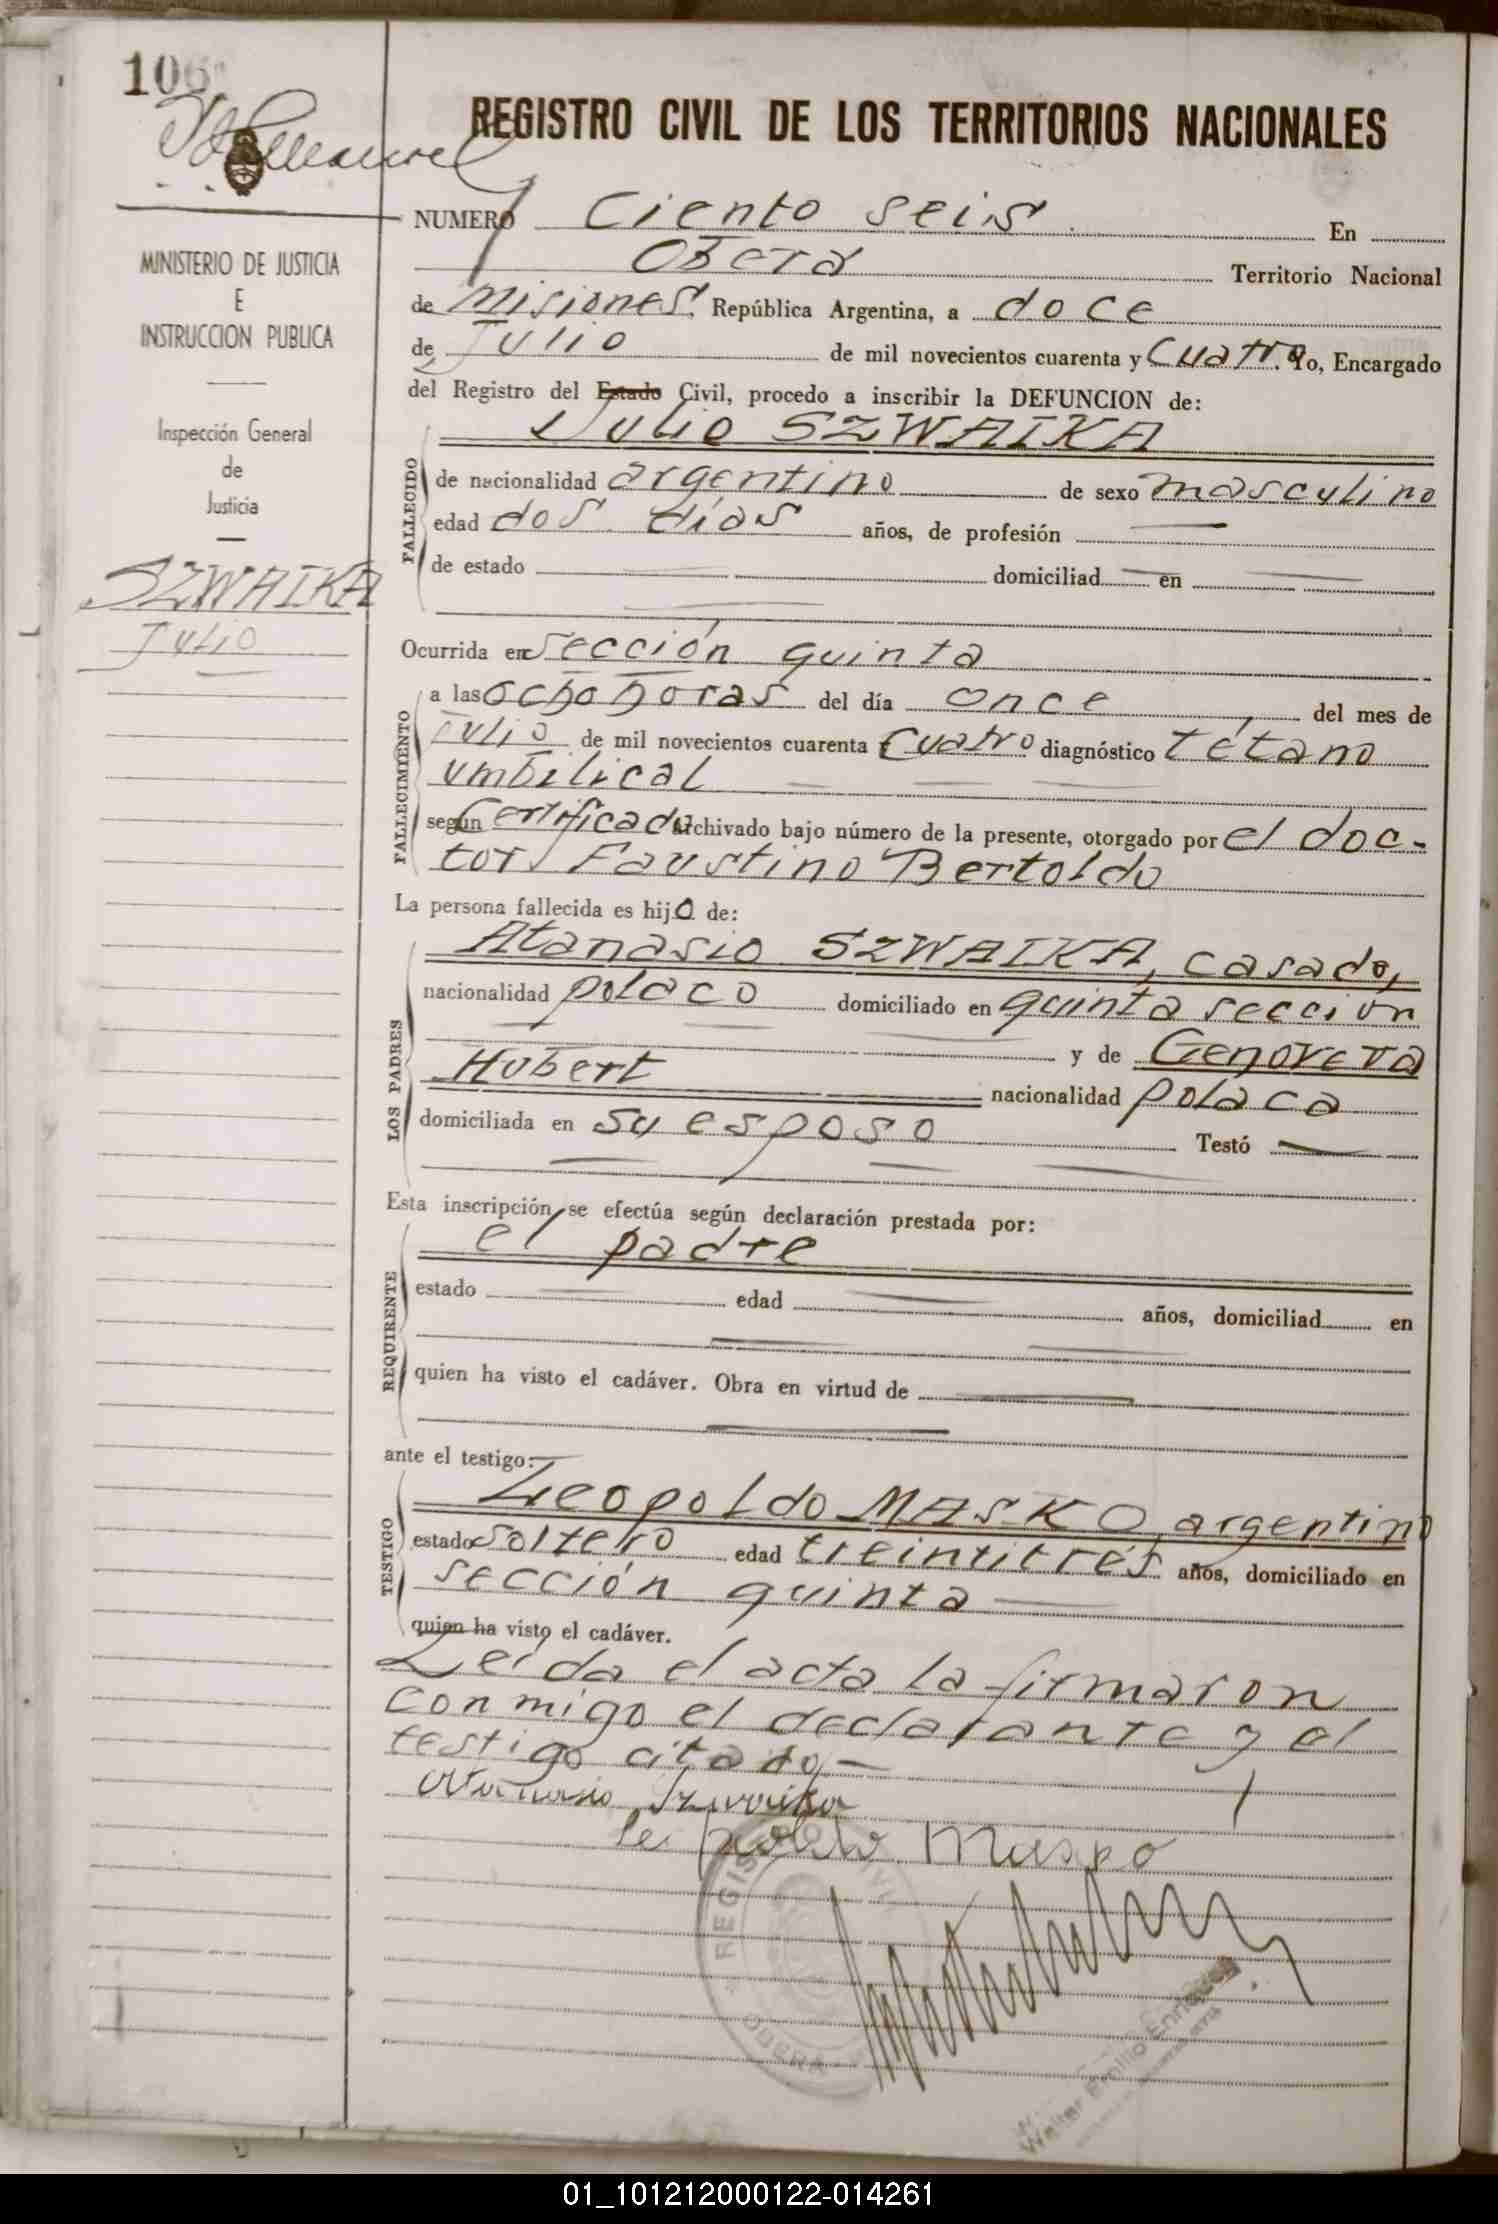 106
REGISTRO CIVIL DE LOS TERRITORIOS NACIONALES
MINISTERIO DE JUSTICIA
E
INSTRUCCION PUBLICA
Inspección General
de
Justicia
SZWAIKA
Julio
NUMERO Ciento seis En
Oberá Territorio Nacional
de Misiones República Argentina, a doce
de Julio de mil novecientos cuarenta y Cuatro Yo, Encargado
del Registro del Estado Civil, procedo a inscribir la DEFUNCION de:
Julio SZWAIKA
FALLECIDO
de nacionalidad argentino de sexo masculino
edad dos días años, de profesión
de estado domiciliad en
Ocurrida en sección quinta
FALLECIMIENTO
a las ocho horas del día once del mes de
Julio de mil novecientos cuarenta Cuatro diagnóstico tétano
umbilical
según Certificado archivado bajo número de la presente, otorgado por el doc-
tor Faustino Bertoldo
La persona fallecida es hijo de:
LOS PADRES
Atanasio SZWAIKA, casado,
nacionalidad polaco domiciliado en quinta sección
y de Genoveva
Hubert nacionalidad polaca
domiciliada en su esposo Testó
Esta inscripción se efectúa según declaración prestada por:
REQUIRENTE
el padre
estado edad años, domiciliad en
quien ha visto el cadáver. Obra en virtud de
ante el testigo:
TESTIGO
Leopoldo MASKO, argentino
estado soltero edad treintitrés años, domiciliado en
sección quinta
quien ha visto el cadáver.
Leída el acta la firmaron
conmigo el declarante y el
testigo citado
Atanasio Szwaika
Leopoldo Masko
REGISTRO CIVIL
OBERA
Walter Emilio Enriquez
01_101212000122-014261